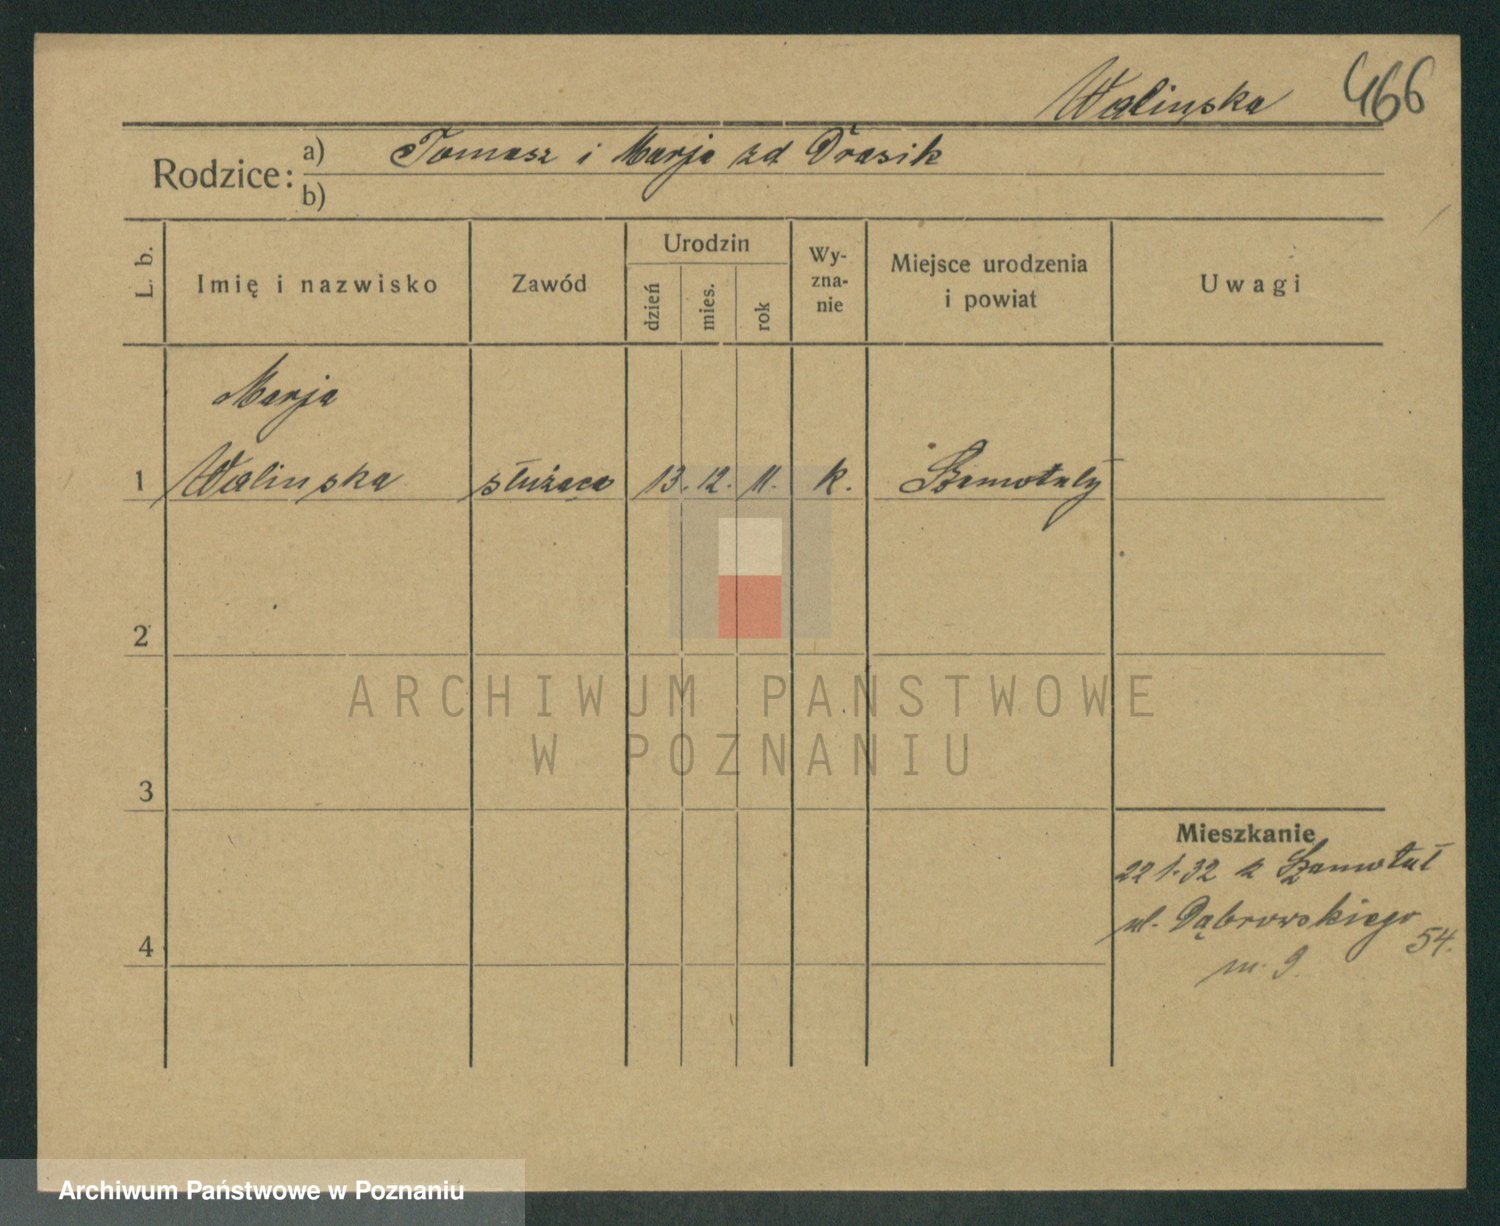 Walinska 466
Rodzice: a) Tomasz i Marja zd Drasik
b)
L. b. Imię i nazwisko Zawód Urodzin dzień mies. rok Wy-zna-nie Miejsce urodzenia i powiat Uwagi
Marja
1 Walinska służąca 13. 12. 11. k. Szamotuły
2
3
4
Mieszkanie
22 1. 32 z Szamotuł
ul. Dąbrowskiego 54.
m. 9.
ARCHIWUM PAŃSTWOWE
W POZNANIU
Archiwum Państwowe w Poznaniu